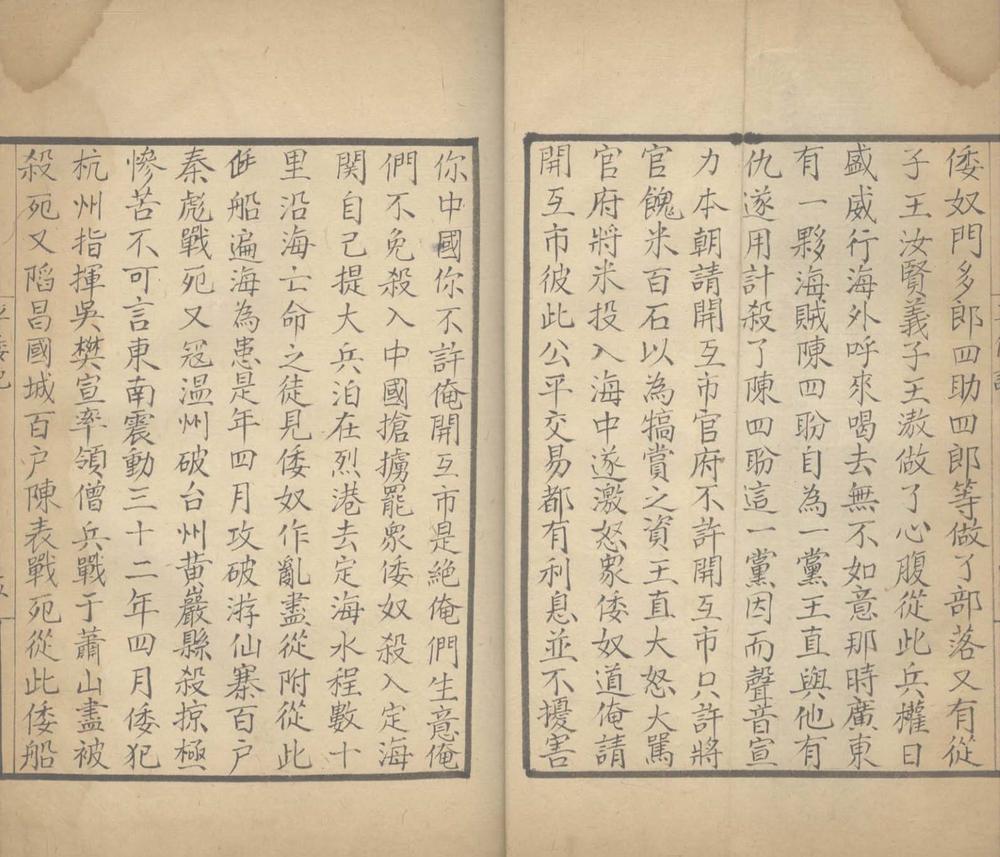 倭奴門多郎四助四郎等做了部落又有從
子王汝賢義子王滶做了心腹從此兵權日
盛威行海外呼來喝去無不如意那時廣東
有一夥海賊陳四盼自為一黨王直與他有
仇遂用計殺了陳四盼這一黨因而聲音宣
力本朝請開互市官府不許開互市只許將
官餽米百石以為犒賞之資王直大怒大罵
官府將米投入海中遂激怒眾倭奴道俺請
開互市彼此公平交易都有利息並不擾害
你中國你不許俺開互市是絕俺們生意俺
們不免殺入中國搶擄罷眾倭奴殺入定海
関自己提大兵泊在烈港去定海水程數十
里沿海亡命之徒見倭奴作亂盡從附從此
倭船遍海為患是年四月攻破游仙寨百戶
秦彪戰死又冦温州破台州黄巖縣殺掠極
慘苦不可言東南震動三十二年四月倭犯
杭州指揮吳樊宣率領僧兵戰于蕭山盡被
殺死又䧟昌國城百户陳表戰死從此倭船
平倭記